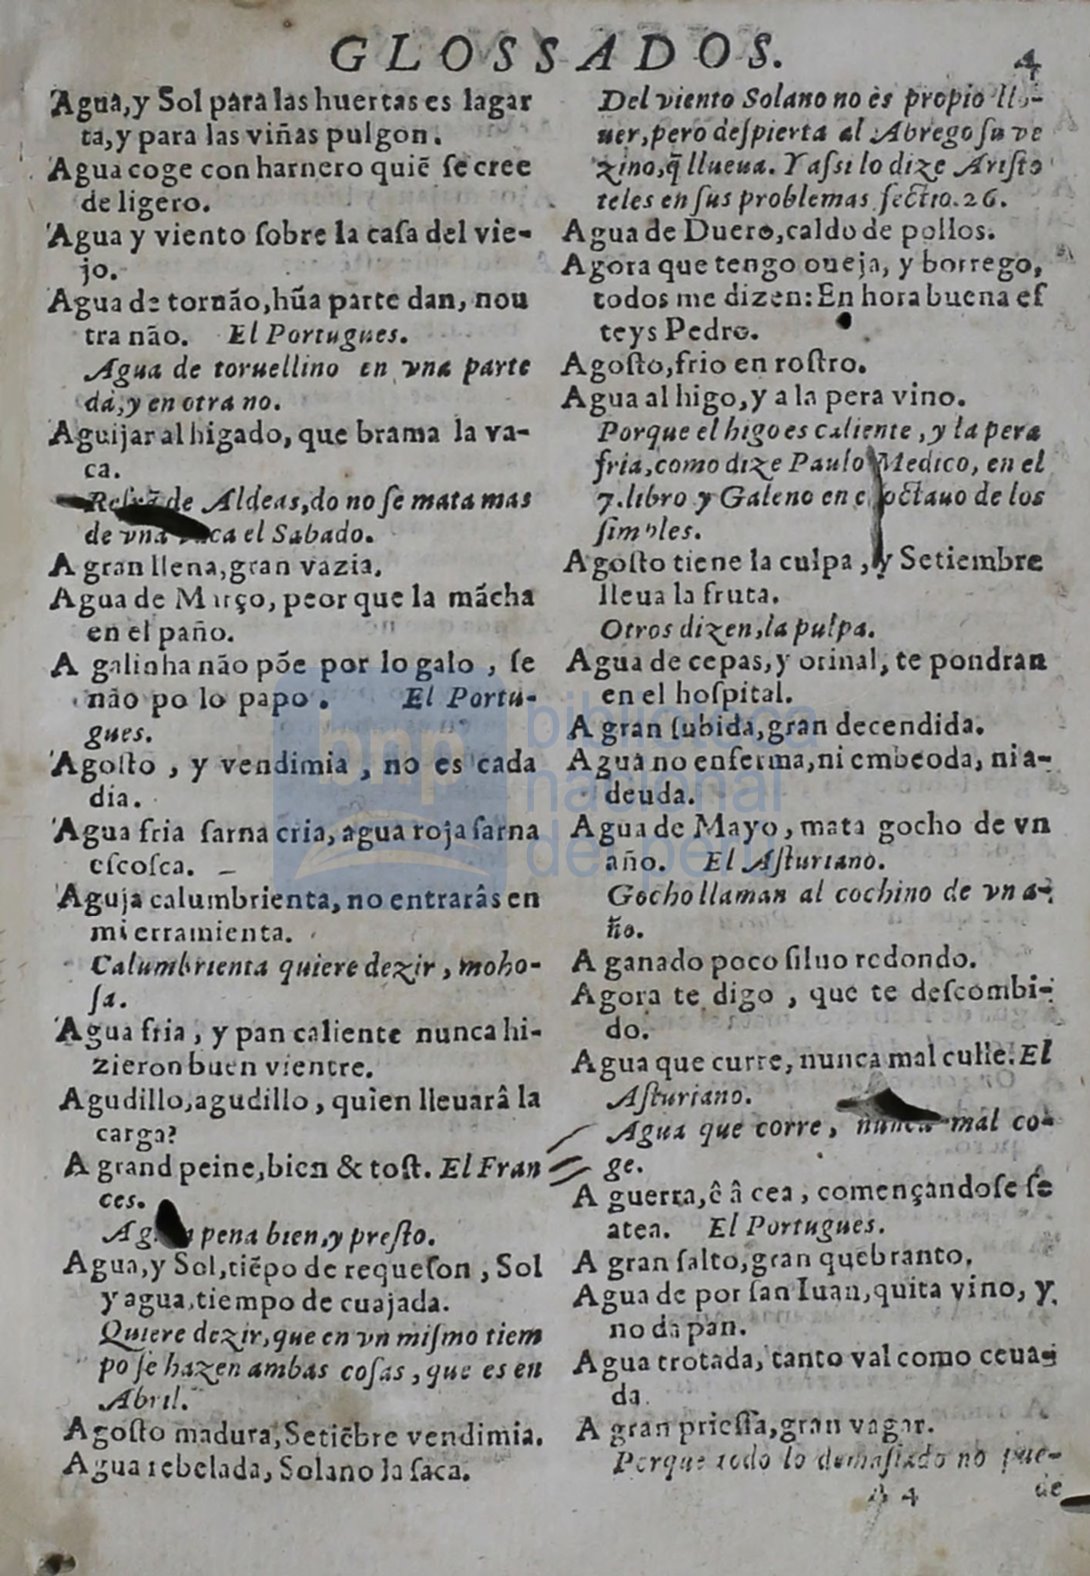 GLOSSADOS. 4
Agua, y Sol para las huertas es lagar
ta, y para las viñas pulgon.
Agua coge con harnero quiẽ se cree
de ligero.
Agua y viento sobre la casa del vie-
jo.
Agua de toruão, hũa parte dan, nou
tra não. El Portugues.
Agua de toruellino en vna parte
da, y en otra no.
Aguijar al higado, que brama la va-
ca.
de Aldeas, do no se mata mas
de vna vaca el Sabado.
A gran llena, gran vazia.
Agua de Março, peor que la mãcha
en el paño.
A galinha não põe por lo galo, se
não po lo papo. El Portu-
gues.
Agosto, y vendimia, no es cada
dia.
Agua fria sarna cria, agua roja sarna
escosca.
Aguja calumbrienta, no entrarâs en
mi erramienta.
Calumbrienta quiere dezir, moho-
sa.
Agua fria, y pan caliente nunca hi-
zieron buen vientre.
Agudillo, agudillo, quien lleuarâ la
carga?
A grand peine, bien & tost. El Fran
ces.
A pena bien, y presto.
Agua, y Sol, tiẽpo de requeson, Sol
y agua, tiempo de cuajada.
Quiere dezir, que en vn mismo tiem
po se hazen ambas cosas, que es en
Abril.
Agosto madura, Setiẽbre vendimia.
Agua rebelada, Solano la saca.
Del viento Solano no es propio llo-
uer, pero despierta al Abrego su ve
zino, q̃ llueua. Y assi lo dize Aristo
teles en sus problemas sectio. 26.
Agua de Duero, caldo de pollos.
Agora que tengo oueja, y borrego,
todos me dizen: En hora buena es
teys Pedro.
Agosto, frio en rostro.
Agua al higo, y a la pera vino.
Porque el higo es caliente, y la pera
fria, como dize Paulo Medico, en el
7. libro y Galeno en el octauo de los
simples.
Agosto tiene la culpa, y Setiembre
lleua la fruta.
Otros dizen, la pulpa.
Agua de cepas, y orinal, te pondran
en el hospital.
A gran subida, gran decendida.
Agua no enferma, ni embeoda, ni a-
deuda.
Agua de Mayo, mata gocho de vn
año. El Asturiano.
Gocho llaman al cochino de vn a-
ño.
A ganado poco siluo redondo.
Agora te digo, que te descombi-
do.
Agua que curre, nunca mal culle. El
Asturiano.
Agua que corre, nunca mal co-
ge.
A guerra, ê â cea, començandose se
atea. El Portugues.
A gran salto, gran quebranto.
Agua de por san Iuan, quita vino, y
no da pan.
Agua trotada, tanto val como ceua-
da.
A gran priessa, gran vagar.
Porque todo lo demasiado no pue-
A 4 de